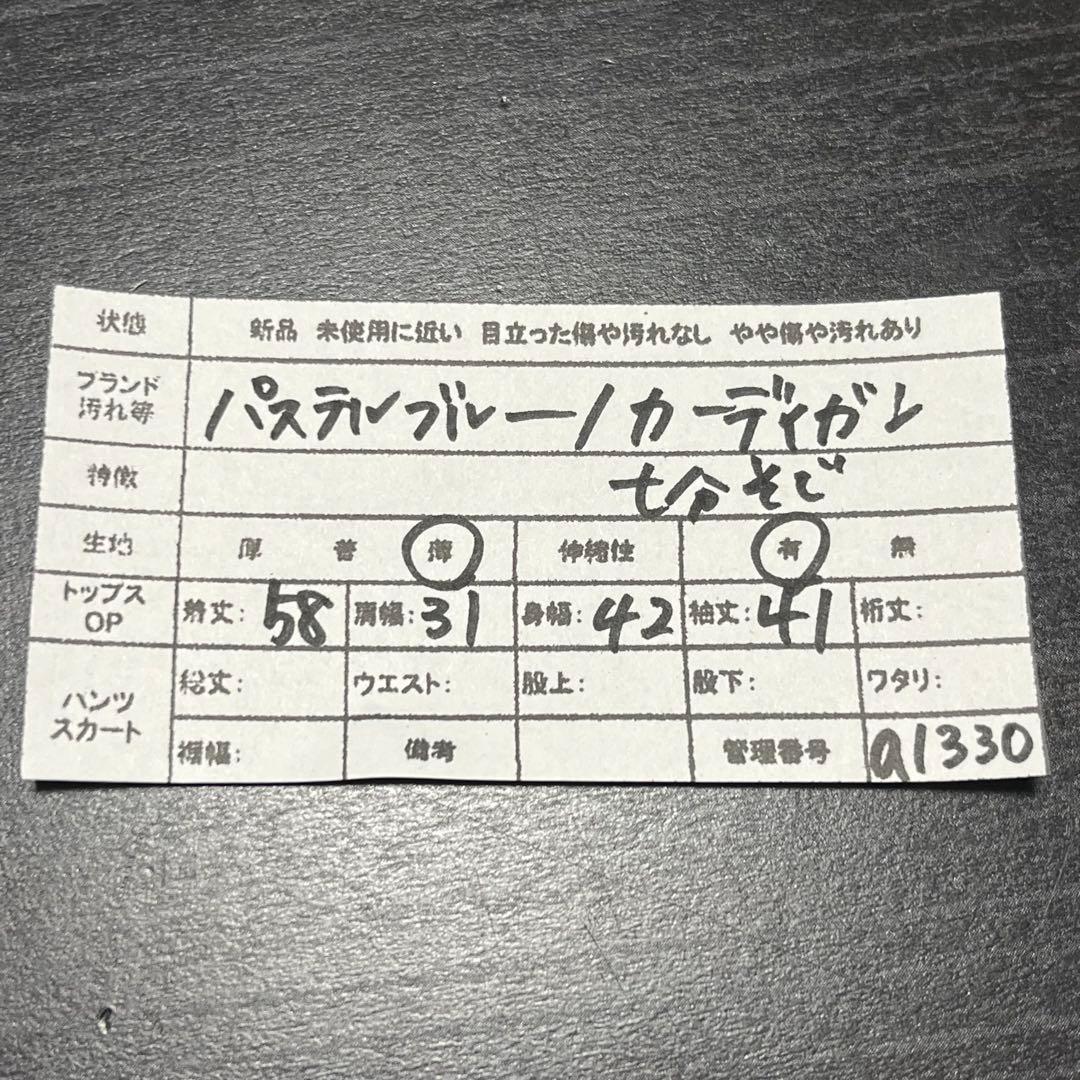 状態 新品 未使用に近い 目立った傷や汚れなし やや傷や汚れあり
ブランド
汚れ等
パステルブルー/カーディガン
特徴 七分そで
生地 厚 普 薄 伸縮性 有 無
トップス
OP
着丈: 58 肩幅: 31 身幅: 42 袖丈: 41 裄丈:
パンツ
スカート
総丈: ウエスト: 股上: 股下: ワタリ:
裾幅: 備考 管理番号 a1330